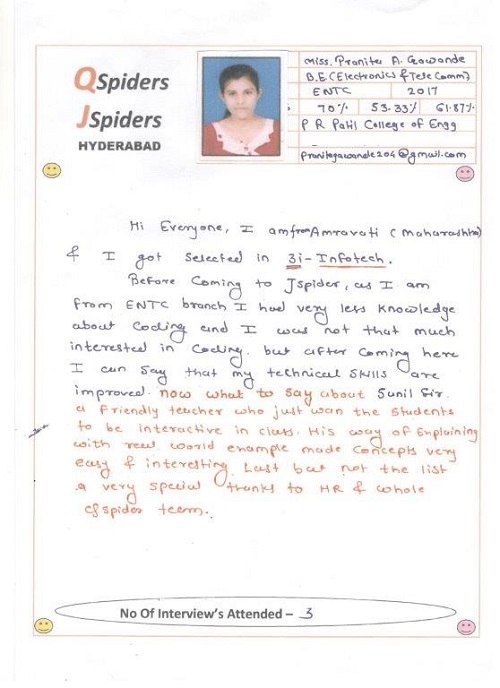 QSpiders
JSpiders
HYDERABAD
Miss. Pranita A. Gawande
B.E (Electronics & Tele Comm)
ENTC 2017
70% 53.33% 61.87%
P R Patil College of Engg
Pranitagawande204@gmail.com
Hi Everyone, I am from Amravati (Maharashtra)
& I got selected in 3i-Infotech.
Before Coming to Jspider, as I am
from ENTC branch I had very less knowledge
about Coding and I was not that much
interested in Coding. but after Coming here
I can say that my technical skills are
improved. now what to say about Sunil Sir.
a friendly teacher who just wan the students
to be interactive in class. His way of Explaining
with real world example made concepts very
easy & interesting. Last but not the list
a very special thanks to HR & whole
spider team.
No Of Interview's Attended – 3